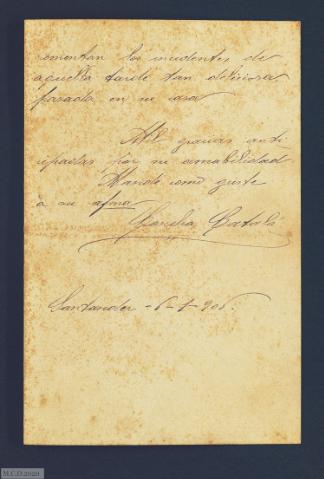 omentan los incidentes de
aquella tarde tan deliciosa
pasada en su casa
Mil gracias anti
cipadas por su amabilidad
Mande como guste
à su afma
Concha
Santander - 6-1-906.
M.C.D 2020